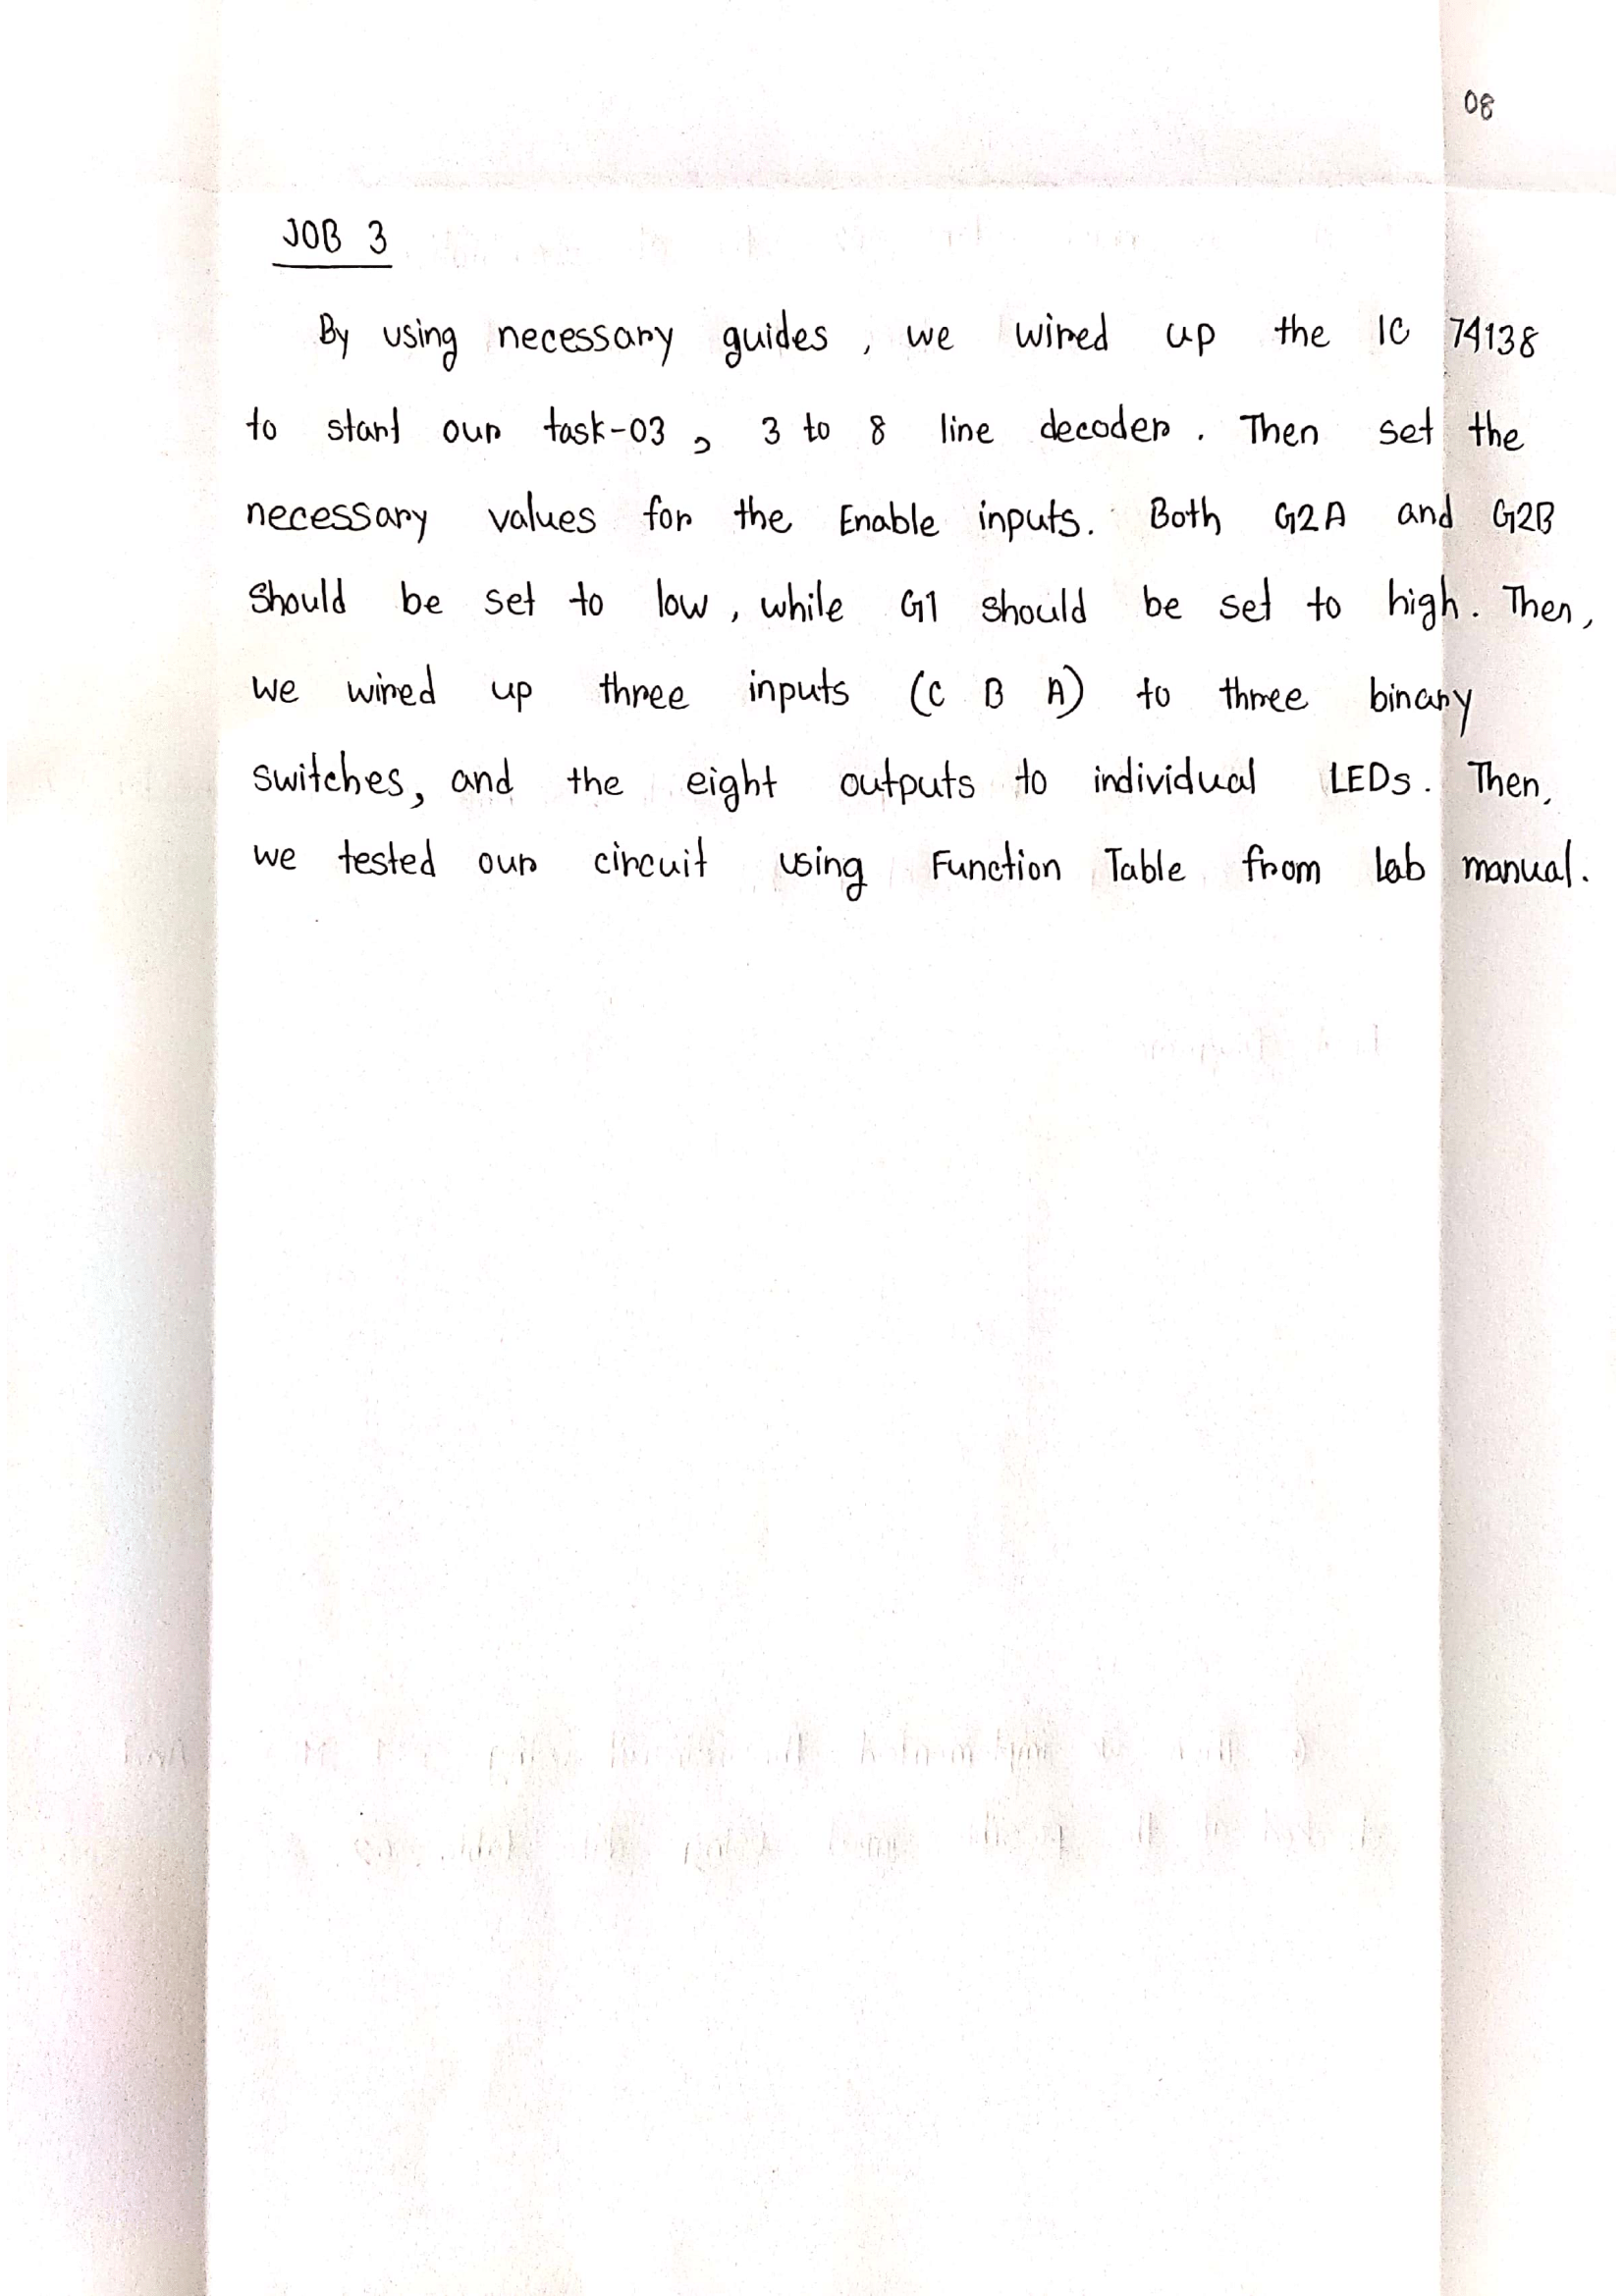 08
JOB 3
By using necessary guides, we wired up the IC 74138
to start our task-03, 3 to 8 line decoder. Then set the
necessary values for the Enable inputs. Both G2A and G2B
should be set to low, while G1 should be set to high. Then,
we wired up three inputs (C B A) to three binary
switches, and the eight outputs to individual LEDs. Then,
we tested our circuit using Function Table from lab manual.